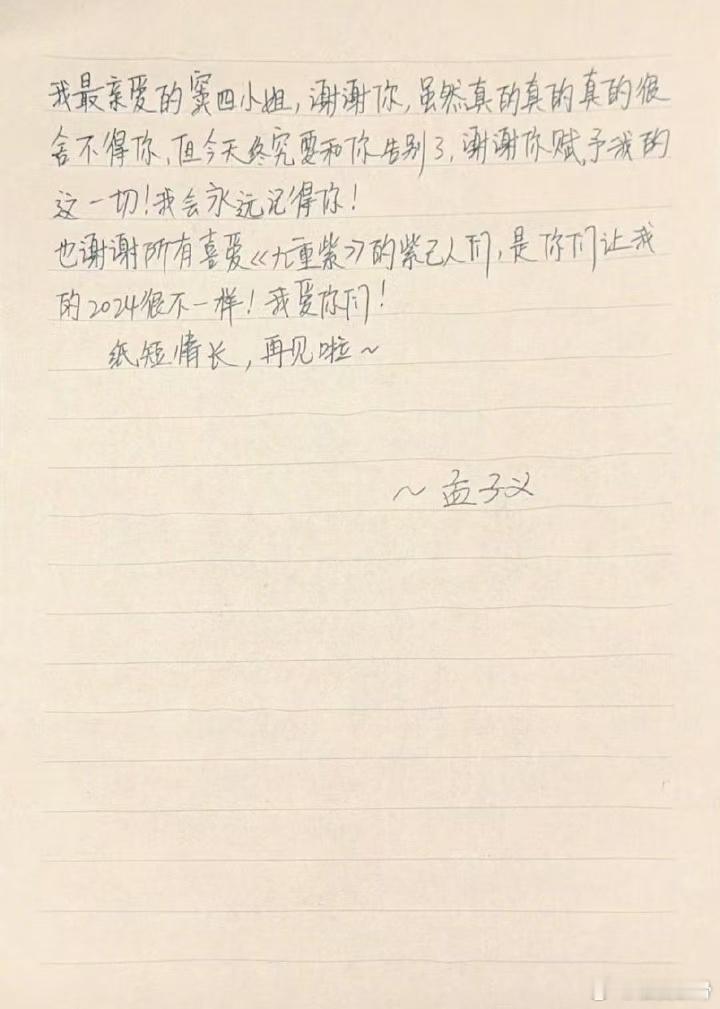 我最亲爱的窦四小姐，谢谢你，虽然真的真的真的很
舍不得你，但今天终究要和你告别了，谢谢你赋予我的
这一切！我会永远记得你！
也谢谢所有喜爱《九重紫》的紫己人们，是你们让我
的2024很不一样！我爱你们！
纸短情长，再见啦～
～孟子义